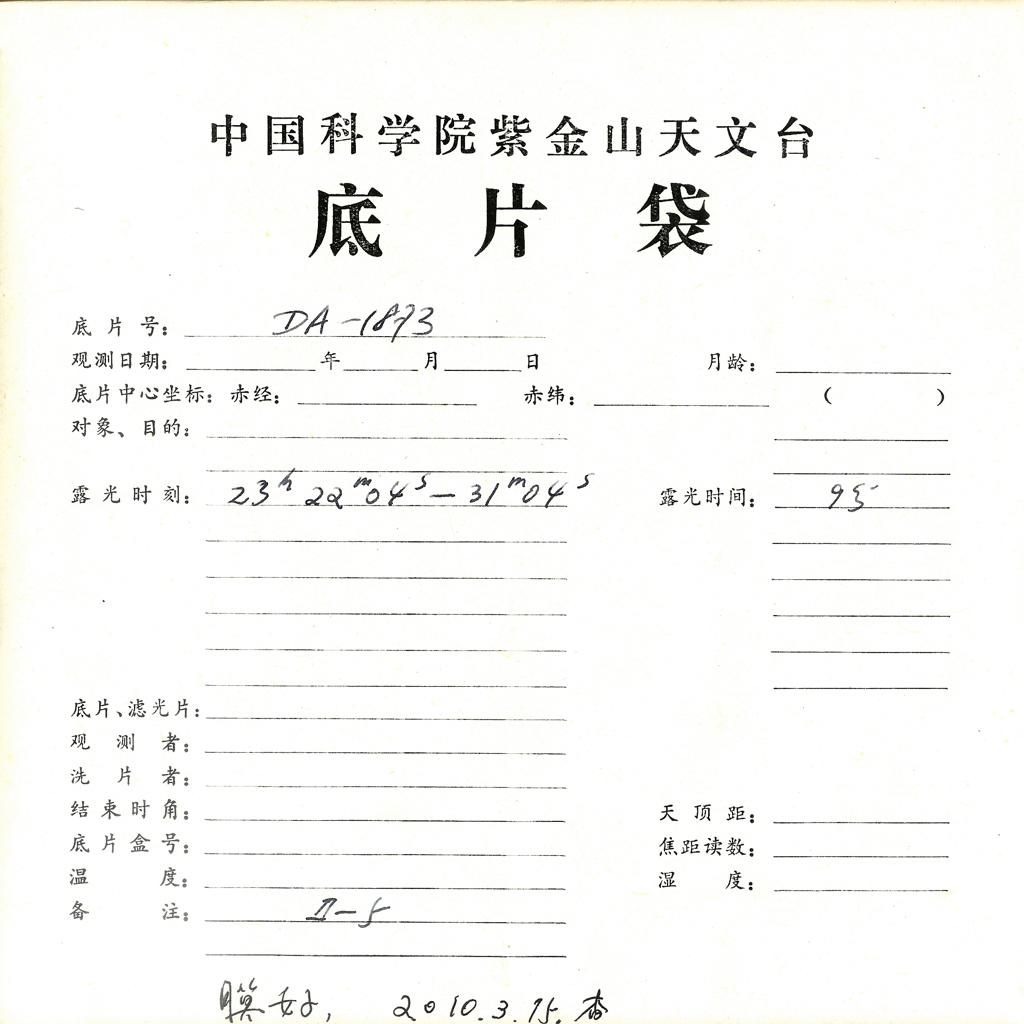 中国科学院紫金山天文台
底片袋
底片号: DA-1873
观测日期: 年 月 日 月龄:
底片中心坐标: 赤经: 赤纬: ( )
对象、目的:
露光时刻: 23h 22m04s—31m04s 露光时间:
底片、滤光片:
观测者:
洗片者:
结束时角: 天顶距:
底片盒号: 焦距读数:
温度: 湿度:
备注: II-5
膜好, 2010.3.15. 查